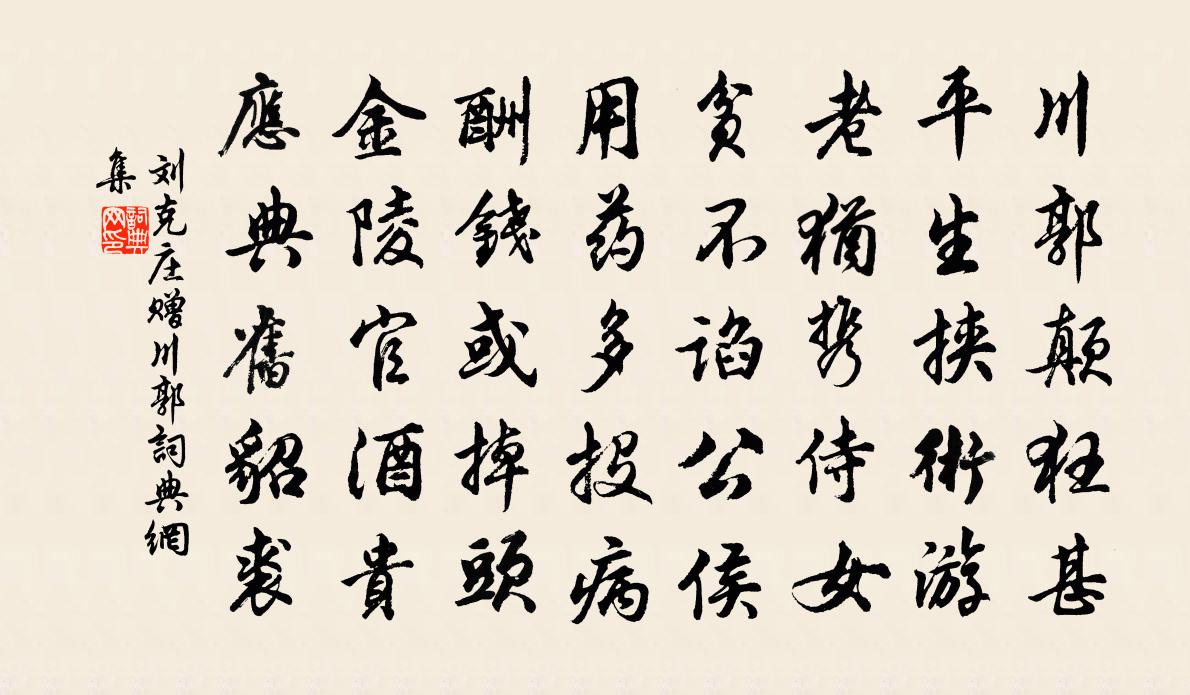 川郭颠狂甚
平生挟術游
老猶携侍女
贫不谄公侯
用药多投病
酬錢或掉頭
金陵官酒貴
應典舊貂裘
刘克庄赠川郭詞典網
集
詞典网印